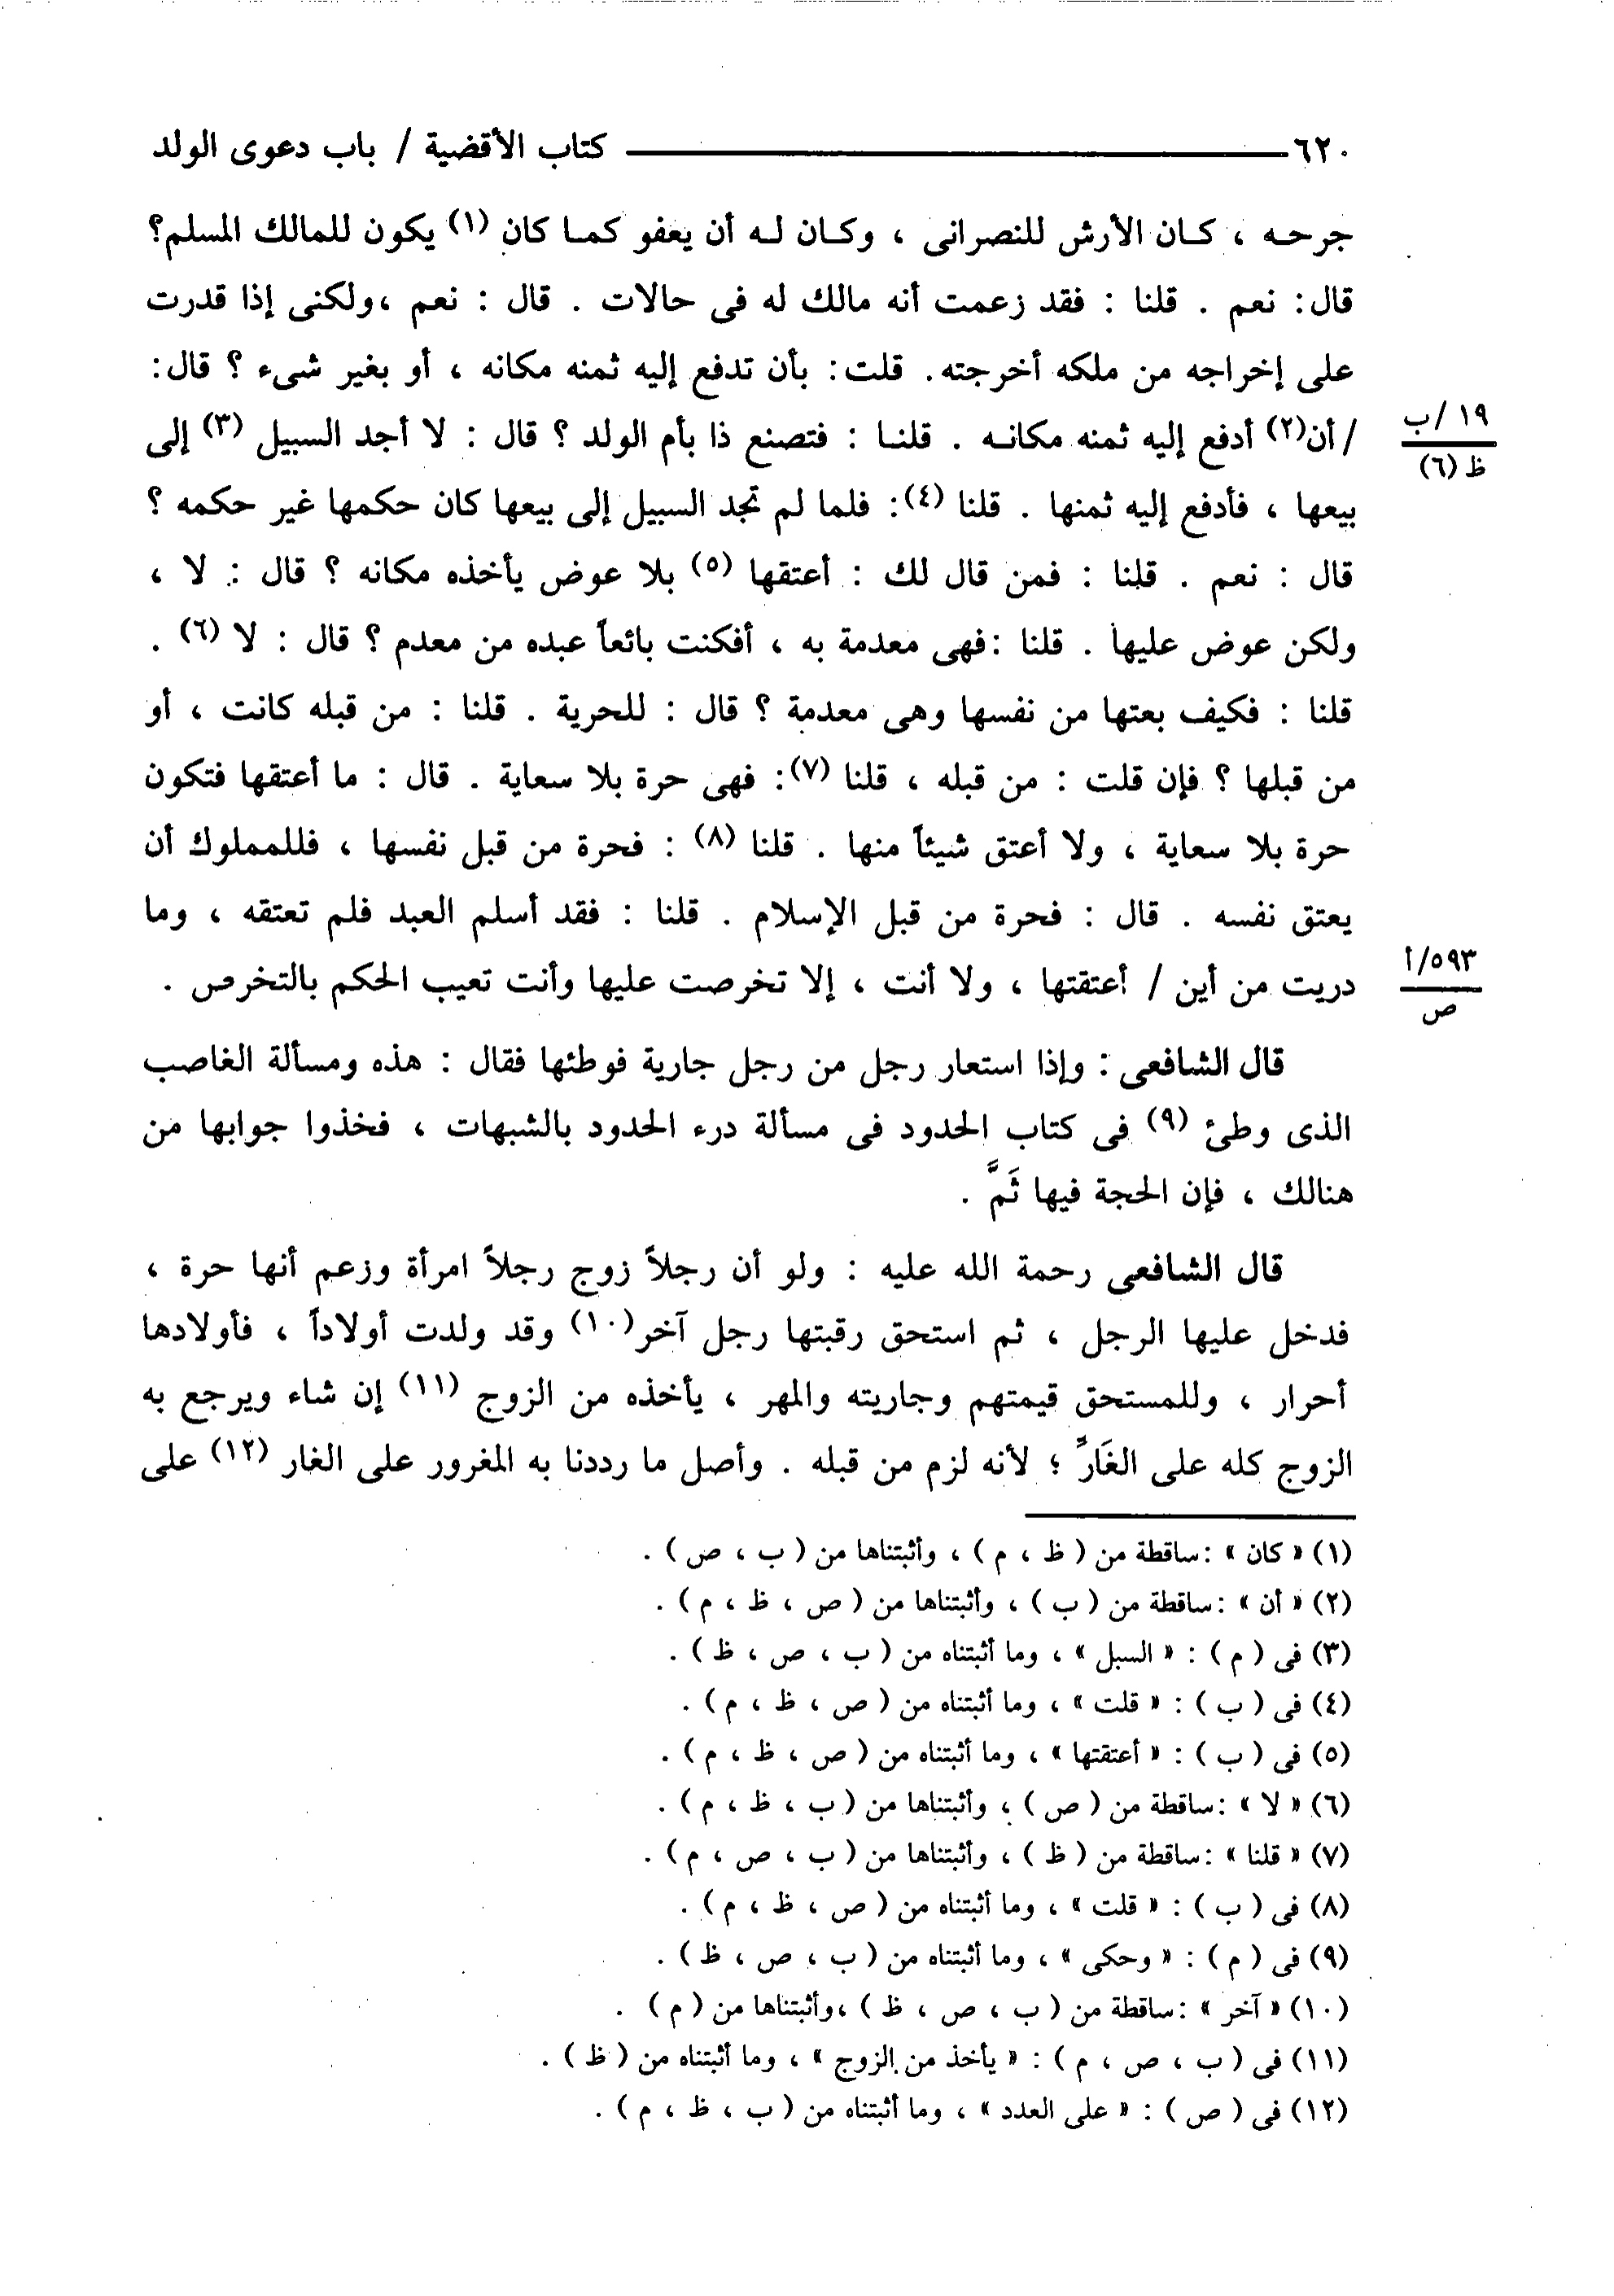 ٦٢٠ ــــــــــــــــ كتاب الأقضية / باب دعوى الولد
جرحه ، كان الأرش للنصرانى ، وكان له أن يعفو كما كان (١) يكون للمالك المسلم؟
قال: نعم . قلنا : فقد زعمت أنه مالك له فى حالات . قال : نعم ،ولكنى إذا قدرت
على إخراجه من ملكه أخرجته. قلت: بأن تدفع إليه ثمنه مكانه ، أو بغير شىء ؟ قال:
/ أن(٢) أدفع إليه ثمنه مكانه . قلنا : فتصنع ذا بأم الولد ؟ قال : لا أجد السبيل (٣) إلى
١٩ /ب
ظ (٦)
بيعها ، فأدفع إليه ثمنها . قلنا (٤): فلما لم تجد السبيل إلى بيعها كان حكمها غير حكمه ؟
قال : نعم . قلنا : فمن قال لك : أعتقها (٥) بلا عوض يأخذه مكانه ؟ قال : لا ،
ولكن عوض عليها . قلنا :فهى معدمة به ، أفكنت بائعاً عبده من معدم ؟ قال : لا (٦) .
قلنا : فكيف بعتها من نفسها وهى معدمة ؟ قال : للحرية . قلنا : من قبله كانت ، أو
من قبلها ؟ فإن قلت : من قبله ، قلنا (٧): فهى حرة بلا سعاية . قال : ما أعتقها فتكون
حرة بلا سعاية ، ولا أعتق شيئاً منها . قلنا (٨) : فحرة من قبل نفسها ، فللمملوك أن
يعتق نفسه . قال : فحرة من قبل الإسلام . قلنا : فقد أسلم العبد فلم تعتقه ، وما
دريت من أين / أعتقتها ، ولا أنت ، إلا تخرصت عليها وأنت تعيب الحكم بالتخرص .
٥٩٣/أ
ص
قال الشافعى : وإذا استعار رجل من رجل جارية فوطئها فقال : هذه ومسألة الغاصب
الذى وطئ (٩) فى كتاب الحدود فى مسألة درء الحدود بالشبهات ، فخذوا جوابها من
هنالك ، فإن الحجة فيها ثَمَّ .
قال الشافعى رحمة الله عليه : ولو أن رجلاً زوج رجلاً امرأة وزعم أنها حرة ،
فدخل عليها الرجل ، ثم استحق رقبتها رجل آخر(١٠) وقد ولدت أولاداً ، فأولادها
أحرار ، وللمستحق قيمتهم وجاريته والمهر ، يأخذه من الزوج (١١) إن شاء ويرجع به
الزوج كله على الغَارِّ ؛ لأنه لزم من قبله . وأصل ما رددنا به المغرور على الغار (١٢) على
(١) « كان » :ساقطة من ( ظ ، م ) ، وأثبتناها من ( ب ، ص ) .
(٢) « أن » :ساقطة من ( ب ) ، وأثبتناها من ( ص ، ظ ، م ) .
(٣) فى ( م ) : « السبل » ، وما أثبتناه من ( ب ، ص ، ظ ) .
(٤) فى ( ب ) : « قلت » ، وما أثبتناه من ( ص ، ظ ، م ) .
(٥) فى ( ب ) : « أعتقتها » ، وما أثبتناه من ( ص ، ظ ، م ) .
(٦) « لا » :ساقطة من ( ص ) ، وأثبتناها من ( ب ، ظ ، م ) .
(٧) « قلنا » :ساقطة من ( ظ ) ، وأثبتناها من ( ب ، ص ، م ) .
(٨) فى ( ب ) : « قلت » ، وما أثبتناه من ( ص ، ظ ، م ) .
(٩) فى ( م ) : « وحكى » ، وما أثبتناه من ( ب ، ص ، ظ ) .
(١٠) « آخر » :ساقطة من ( ب ، ص ، ظ ) ،وأثبتناها من ( م ) .
(١١) فى ( ب ، ص ، م ) : « يأخذ من الزوج » ، وما أثبتناه من ( ظ ) .
(١٢) فى ( ص ) : « على العدد » ، وما أثبتناه من ( ب ، ظ ، م ) .